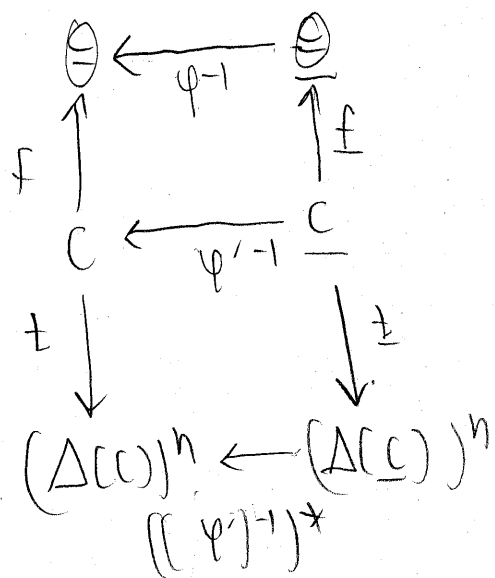 Θ ← Θ
φ-1
f f
C ← C
φ'-1
t t
(Δ(C))ⁿ ← (Δ(C))ⁿ
((φ')-1)*